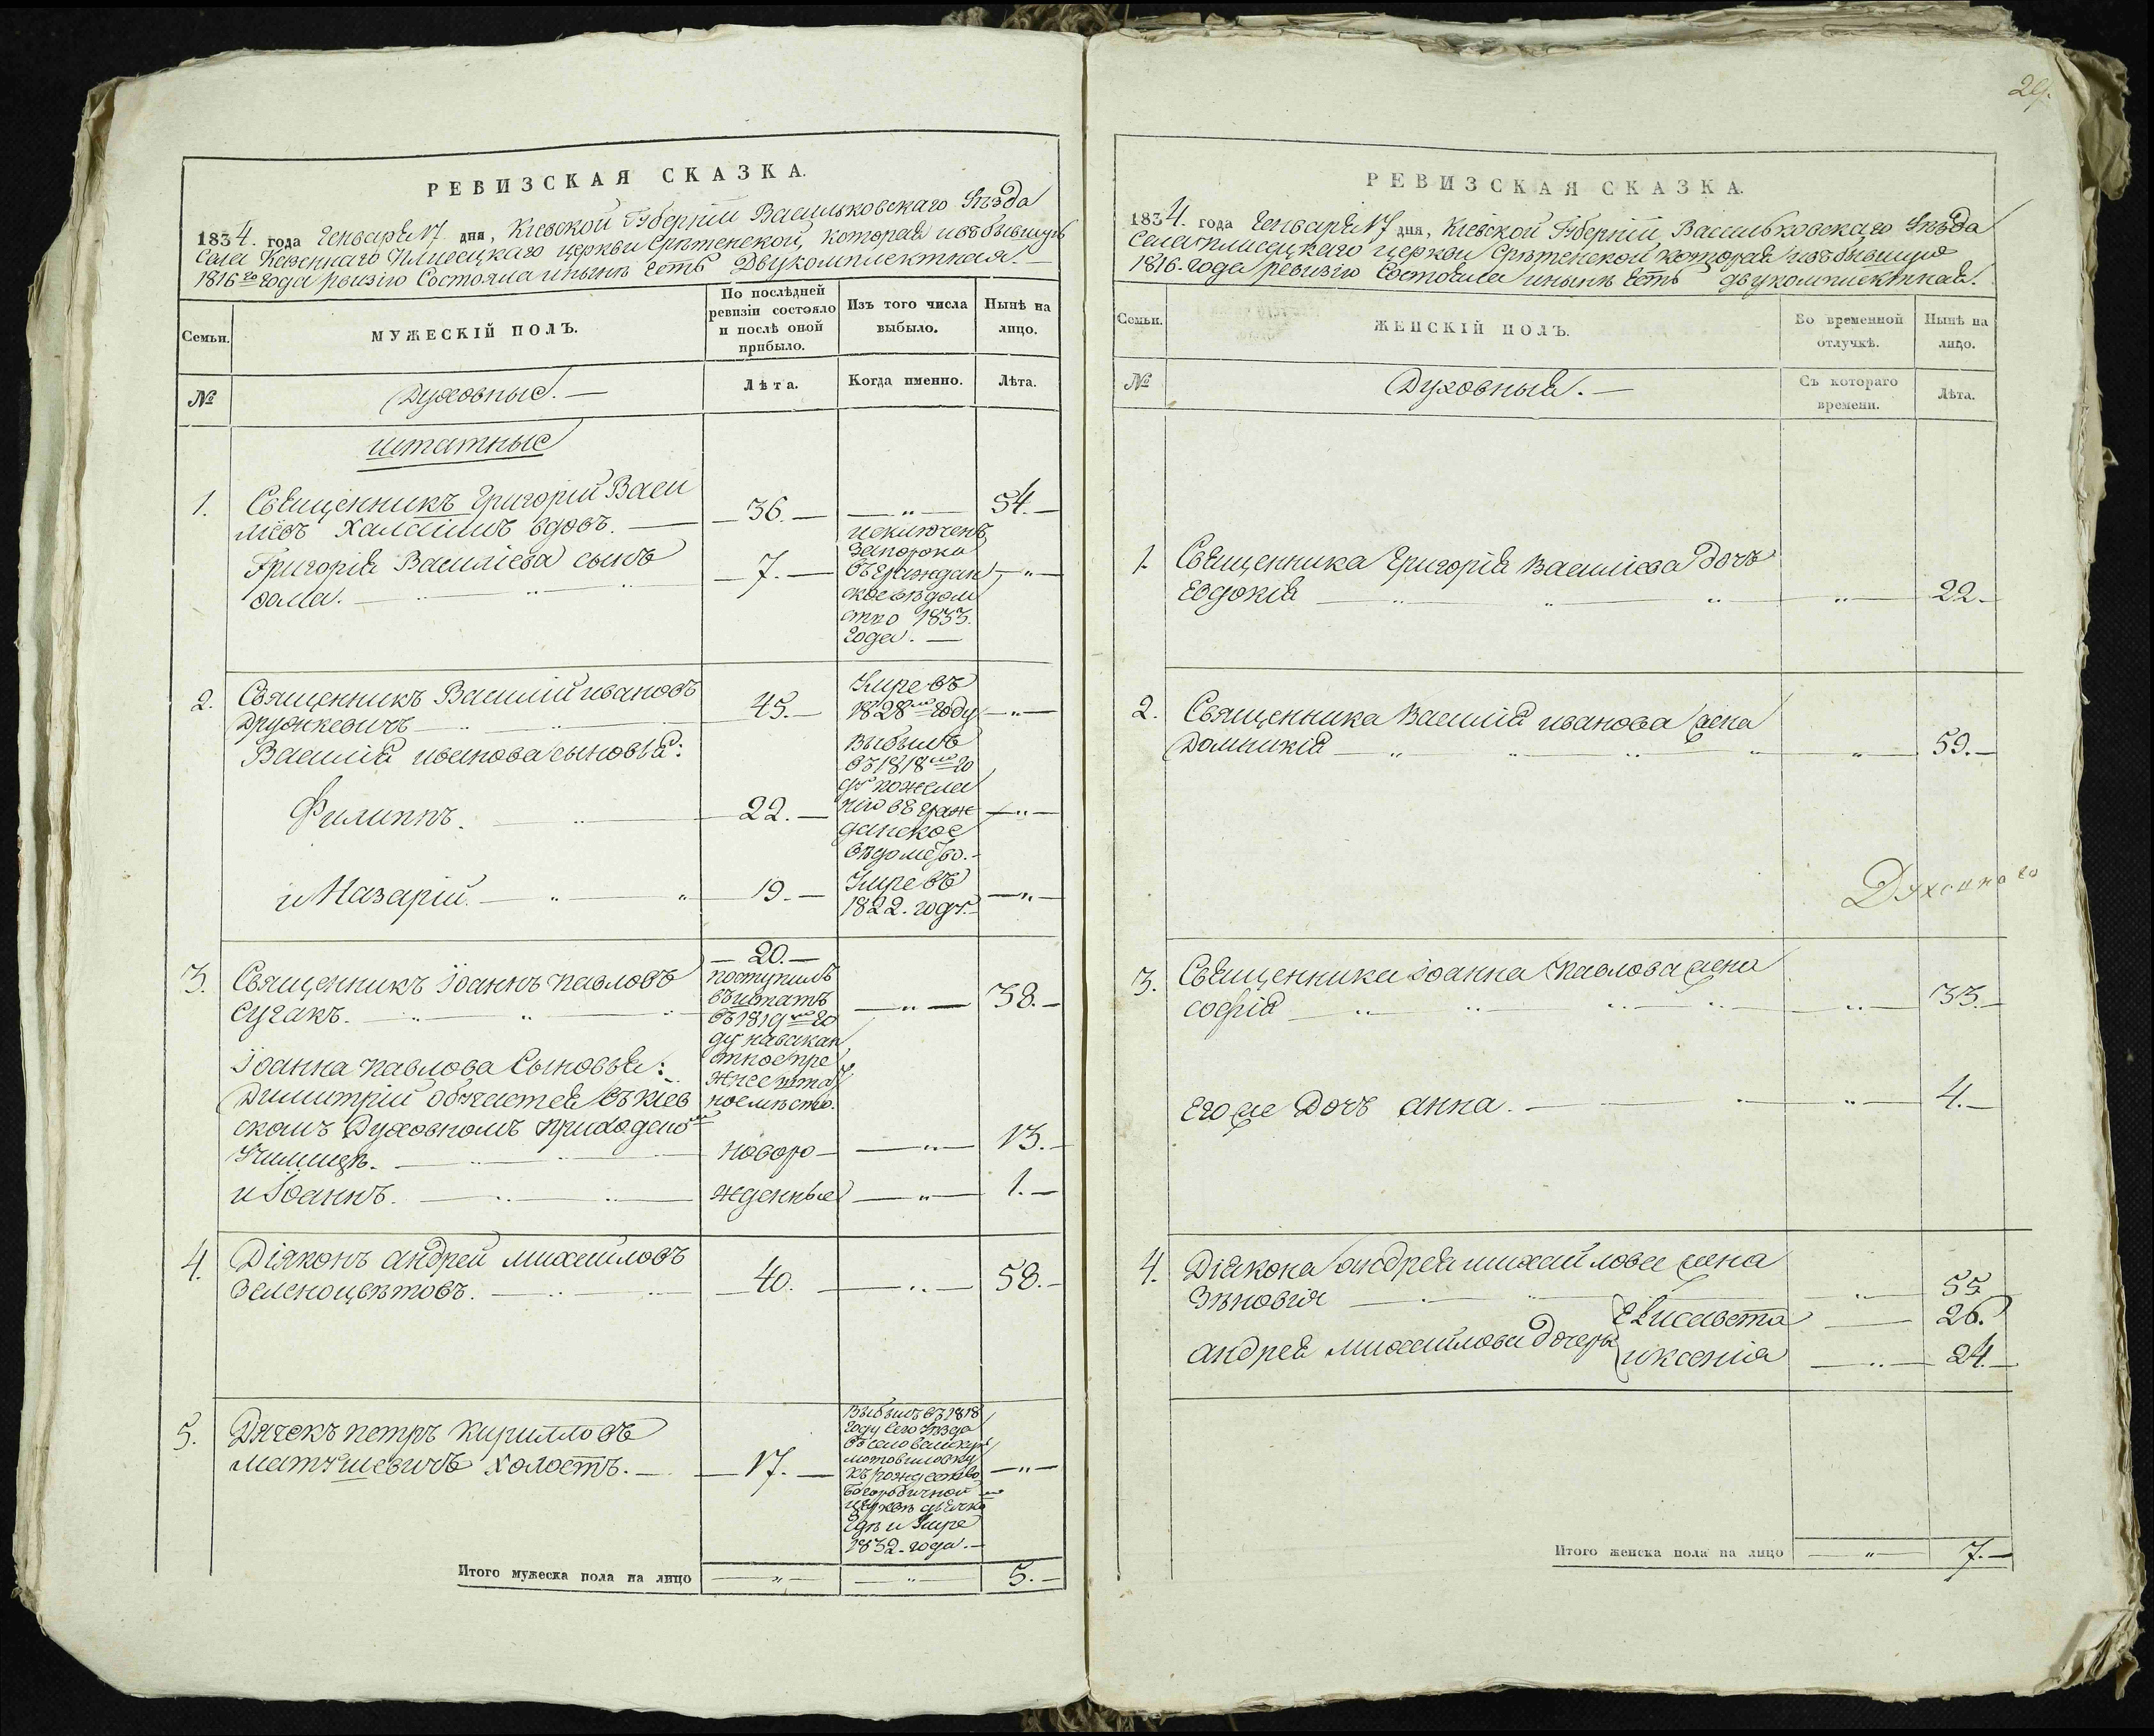 29.
РЕВИЗСКАЯ СКАЗКА.
1834. года Генваря 17 дня, Кіевской Губерніи Васильковскаго Уѣзда
Села Казеннаго Плисецкаго церкви Срѣтенской, которая и въ бывшую
1816го года ревизію Состояла и нынѣ Есть Двукомплектная. —
Семьи.
МУЖЕСКІЙ ПОЛЪ.
По послѣдней
ревизіи состояло
и послѣ оной
прибыло.
Изъ того числа
выбыло.
Нынѣ на
лицо.
№
Духовные. —
Лѣта.
Когда именно.
Лѣта.
штатные
1. Священникъ Григорій Васи
льевъ вдовъ. — 36. — „ — 54. —
Григорія Василіева сынъ
— 7. — — „ —
исключенъ
за порока
въ граждан
ское вѣдом
ство 1833.
года. —
2. Священникъ Василій Ивановъ
Дружкевичъ — 45. — — „ —
Умре въ
1828мъ году
Василія Иванова сыновья:
Филиппъ. — 22. — — „ —
Выбылъ
въ 1818мъ го
ду по жела
нію въ граж
данское
вѣдомство. —
и Назарій. — „ — 19. — — „ —
Умре въ
1822. году. —
3. Священникъ Іоаннъ Павловъ
Сугакъ. — — „ — 38. —
— 20. —
поступилъ
въ штатъ
въ 1819мъ го
ду на вакан
тное пре
жнее штат
ное мѣсто.
Іоанна Павлова Сыновья:
Димитрій обучается въ Кіев
скомъ Духовномъ приходскомъ
Училищѣ. — новоро — „ — 13. —
и Іоаннъ. — жденные — „ — 1. —
4. Діяконъ Андрей Михайловъ
Зеленоцвѣтовъ. — 40. — „ — 58. —
5. Дячекъ Петръ Кирилловъ
Матушевичъ холостъ. — 17. — — „ —
Выбылъ въ 1818
году сего Уѣзда
въ село Великую
Мотовиловку
къ рождество
Богородичной
церквѣ дьячкомъ
гдѣ и Умре
1832. года. —
Итого мужеска пола на лицо — „ — — „ — 5. —
РЕВИЗСКАЯ СКАЗКА.
1834. года Генваря 17 дня, Кіевской Губерніи Васильковскаго Уѣзда
Села Плисецкаго церкви Срѣтенской которая и въ бывшую
1816. года ревизію Состояла и нынѣ Есть двукомплектная.
Семьи.
ЖЕНСКІЙ ПОЛЪ.
Во временной
отлучкѣ.
Нынѣ на
лицо.
№
Духовныя. —
Съ котораго
времени.
Лѣта.
1. Священника Григорія Василіева дочь
Евдокія — „ — 22. —
2. Священника Василія Иванова жена
Домникія — „ — 59. —
Духовнаго
3. Священника Іоанна Павлова жена
Софія — „ — 33. —
Его же Дочь Анна. — „ — 4. —
4. Діякона Андрея Михайлова жена
Зѣновія — „ — 55.
Андрея Михайлова дочеры { Елисавета — 26.
и Ксенія — „ — 24. —
Итого женска пола на лицо — „ — 7. —